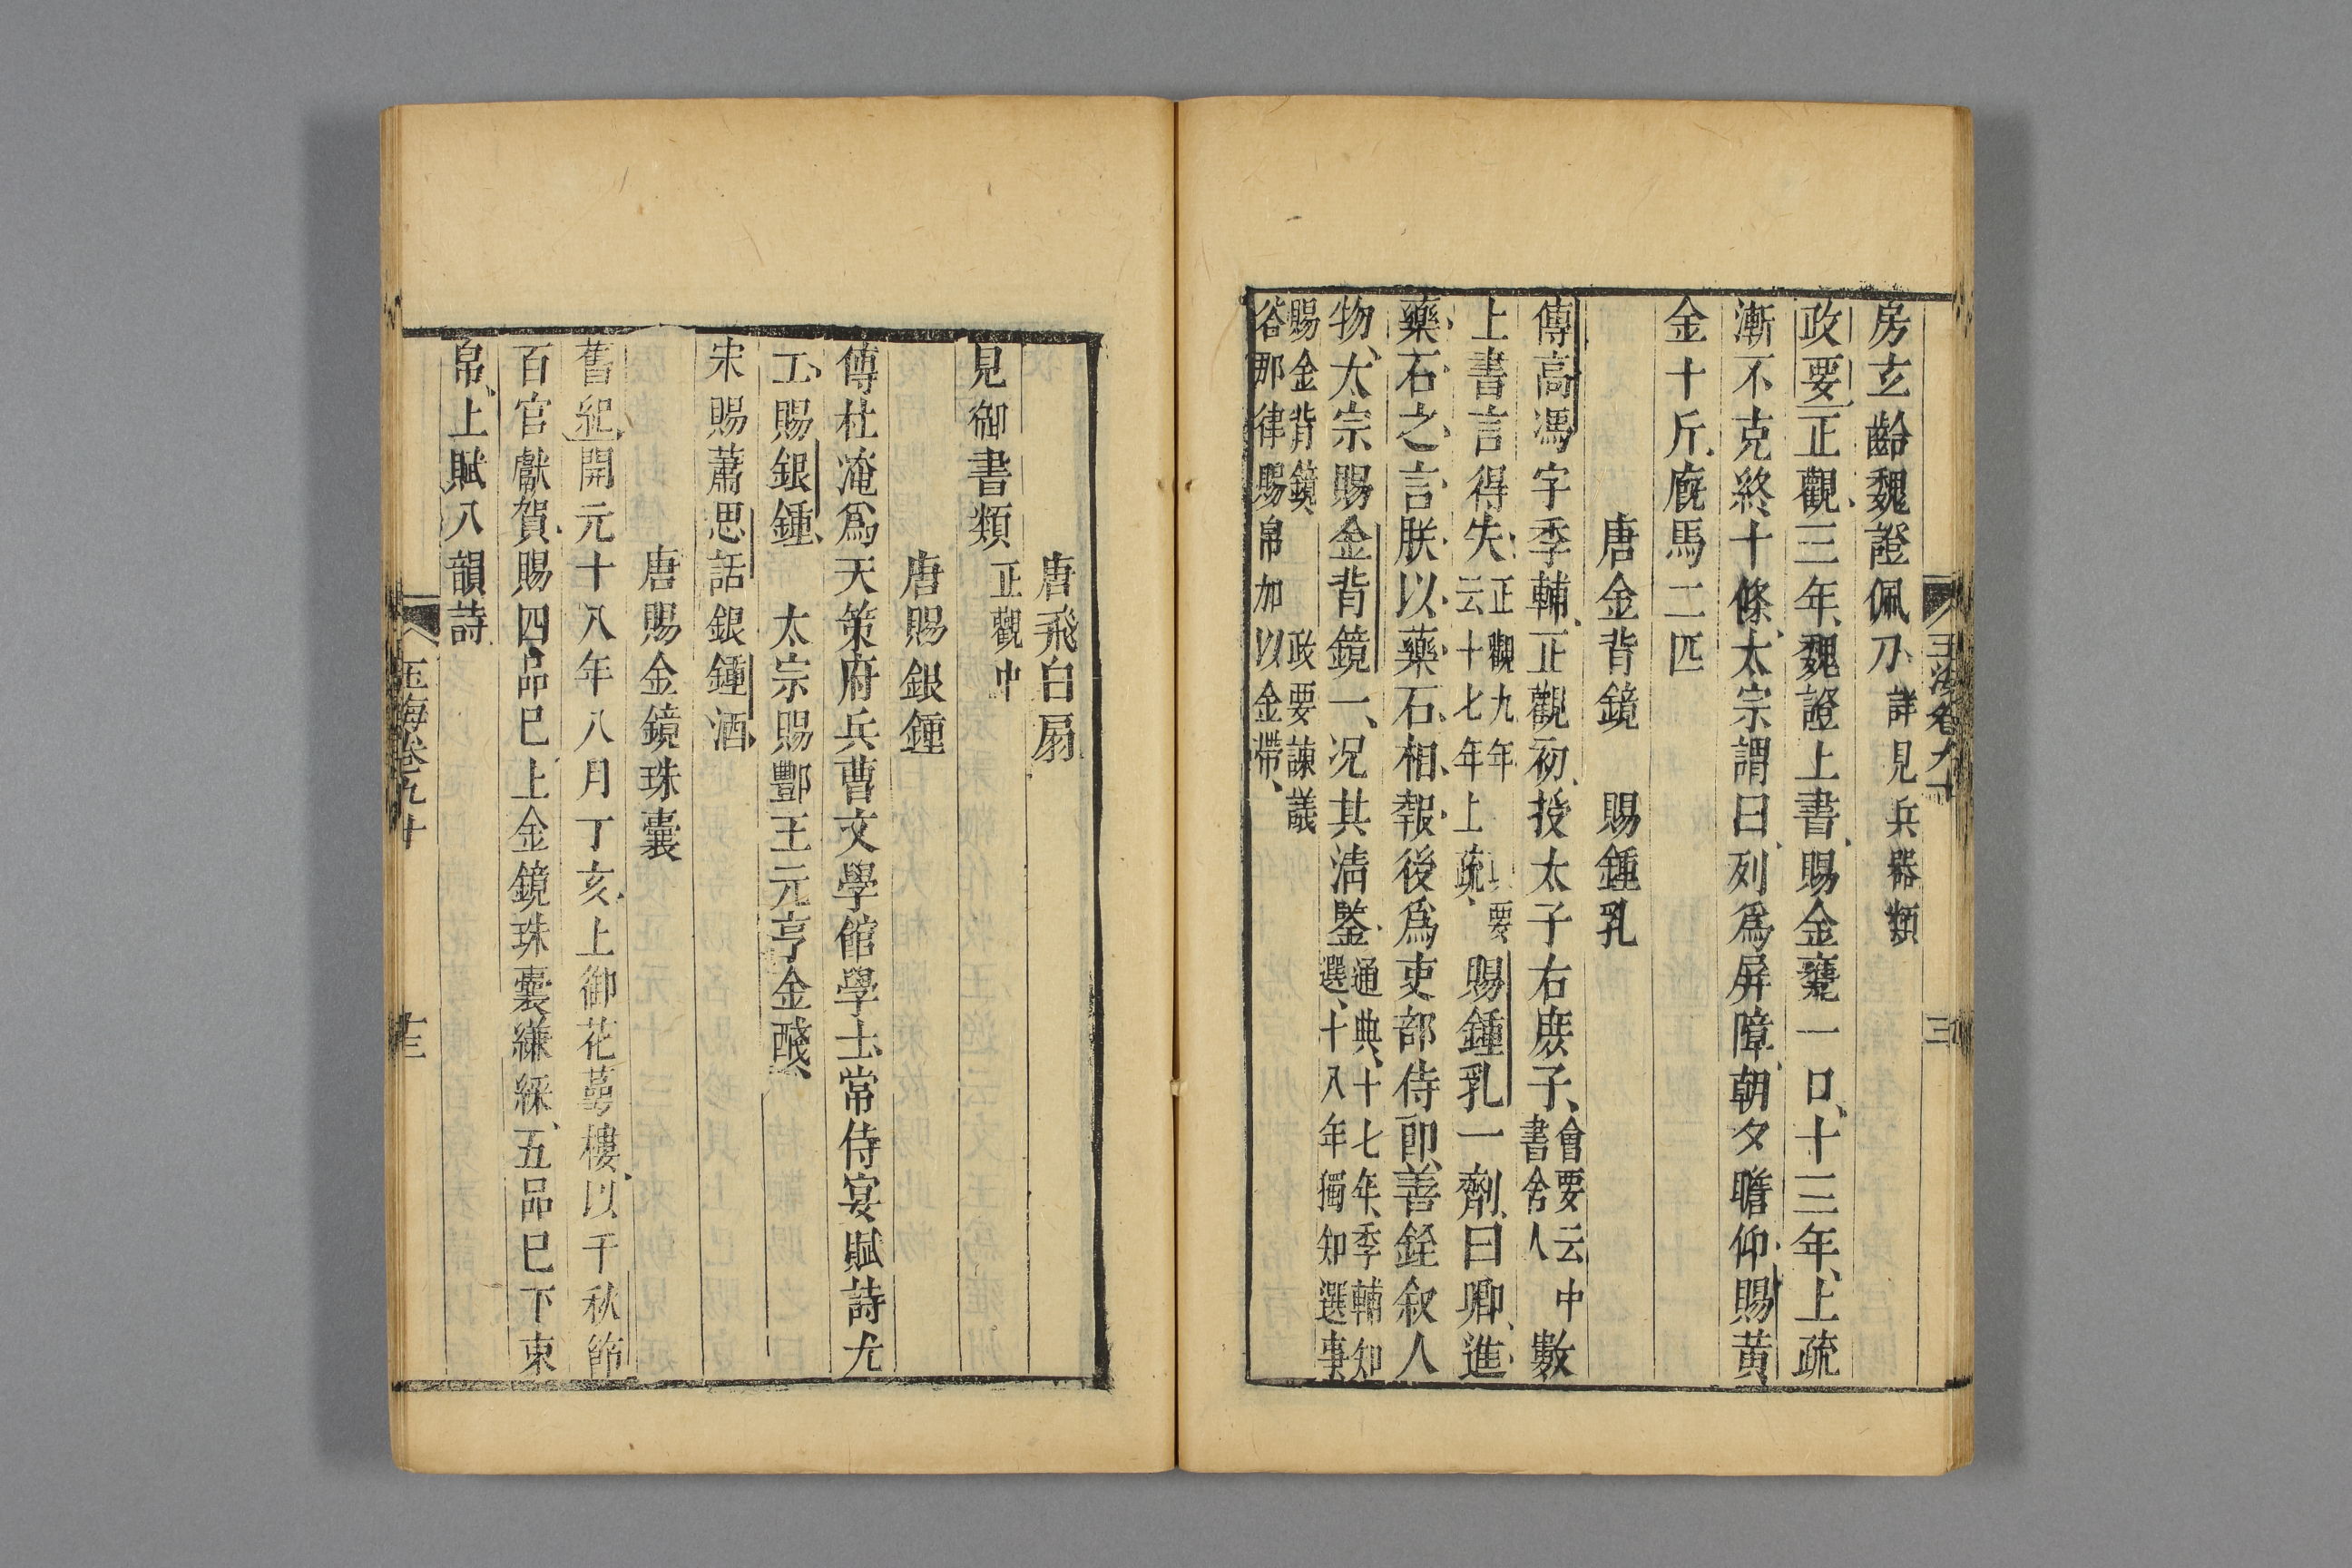 玉海卷九十
房玄齡魏證佩刀詳見兵器類
政要正觀三年魏證上書賜金甕一口十三年上疏
漸不克終十條太宗謂曰列爲屏障朝夕瞻仰賜黄
金十斤廐馬二匹
唐金背鏡 賜鍾乳
傳高馮字季輔正觀初授太子右庻子會要云中書舍人數
上書言得失正觀九年要云十七年上疏賜鍾乳一劑曰卿進
藥石之言朕以藥石相報後爲吏部侍郎善銓叙人
物太宗賜金背鏡一况其清鑒通典十七年季輔知選十八年獨知選事
賜金背鏡 政要諫議谷那律賜帛加以金帶
唐飛白扇
見御書類正觀中
唐賜銀鍾
傳杜淹爲天策府兵曹文學館學士常侍宴賦詩尤
工賜銀鍾 太宗賜酆王元亨金醆
宋賜蕭思話銀鍾酒
唐賜金鏡珠囊
舊紀開元十八年八月丁亥上御花萼樓以千秋節
百官獻賀賜四品已上金鏡珠囊縑綵五品已下束
帛上賦八韻詩
玉海卷九十
十三